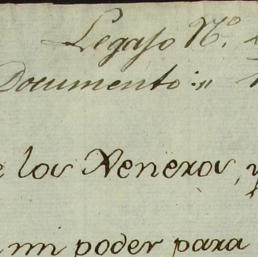 Legajo N.º
Documento
e los Veneros, y
a mi poder para